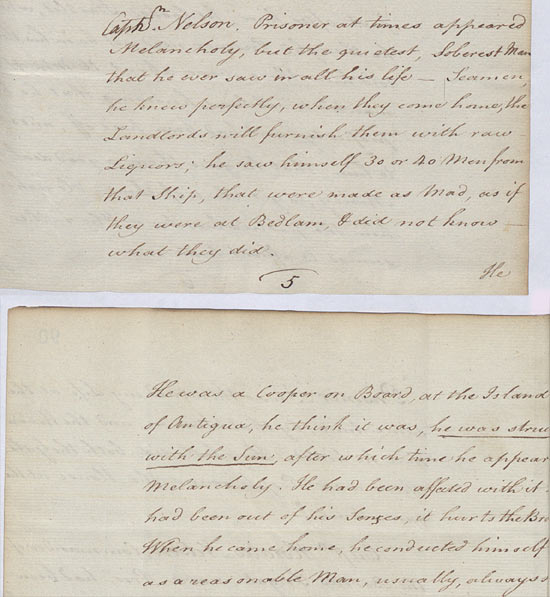 Captn. Nelson. Prisoner at times appeared
Melancholy, but the quietest, Soberest Man
that he ever saw in all his life — Seamen,
he knew perfectly, when they come home, the
Landlords will furnish them with raw
Liquors; he saw himself 30 or 40 Men from
that Ship, that were made as Mad, as if
they were at Bedlam, & did not know —
what they did.
5
He
He was a Cooper on Board, at the Island
of Antigua, he think it was, he was struc
with the Sun, after which time he appear
Melancholy. He had been affected with it
had been out of his Senses, it hurts the Br
When he came home, he conducted himself
as a reasonable Man, usually, always s